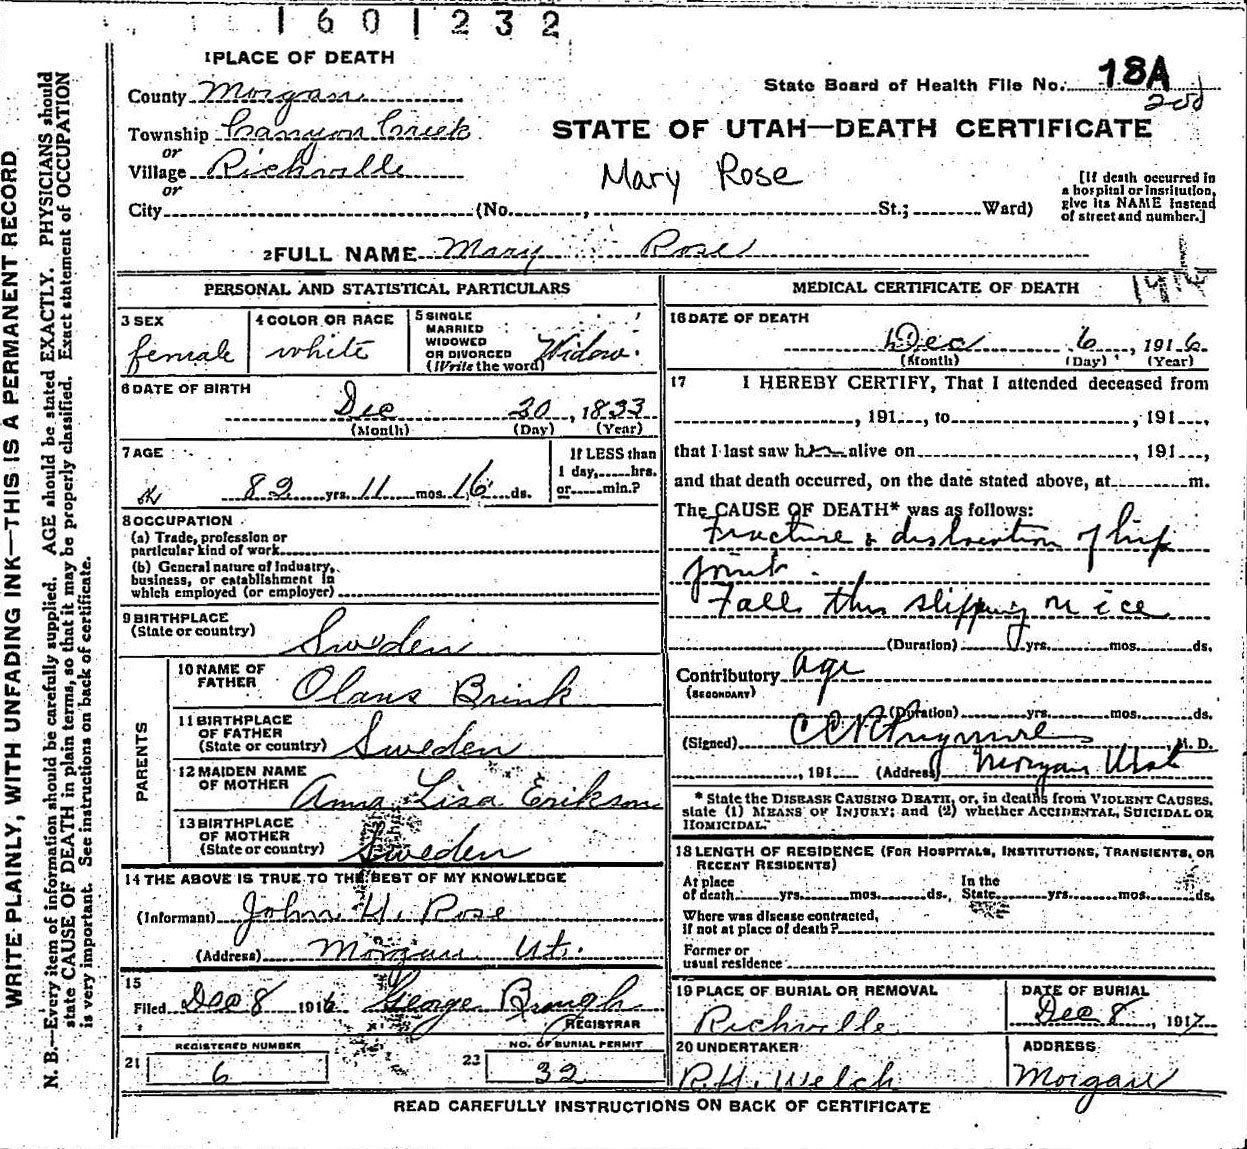 1601232
1PLACE OF DEATH
County Morgan
State Board of Health File No. 18A
Township Canyon Creek
or
STATE OF UTAH—DEATH CERTIFICATE
Village Richville
or
Mary Rose
[If death occurred in
a hospital or institution,
give its NAME instead
of street and number.]
City (No. , St.; Ward)
2FULL NAME Mary Rose
PERSONAL AND STATISTICAL PARTICULARS
3 SEX
female
4 COLOR OR RACE
white
5 SINGLE
MARRIED
WIDOWED
OR DIVORCED
(Write the word)
Widow.
6 DATE OF BIRTH
Dec 20, 1833
(Month) (Day) (Year)
7 AGE
82 yrs. 11 mos. 16 ds.
If LESS than
1 day, hrs.
or min.?
8 OCCUPATION
(a) Trade, profession or
particular kind of work
(b) General nature of industry,
business, or establishment in
which employed (or employer)
9 BIRTHPLACE
(State or country) Sweden
PARENTS
10 NAME OF
FATHER Olans Brink
11 BIRTHPLACE
OF FATHER
(State or country) Sweden
12 MAIDEN NAME
OF MOTHER Anna Lisa Erikson
13 BIRTHPLACE
OF MOTHER
(State or country) Sweden
14 THE ABOVE IS TRUE TO THE BEST OF MY KNOWLEDGE
(Informant) John H. Rose
(Address) Morgan Ut.
15
Filed Dec 8 1916 George Brough
REGISTRAR
REGISTERED NUMBER
21 6
NO. OF BURIAL PERMIT
22 32
MEDICAL CERTIFICATE OF DEATH
16 DATE OF DEATH
Dec 6, 1916
(Month) (Day) (Year)
17 I HEREBY CERTIFY, That I attended deceased from
, 191 , to , 191 ,
that I last saw h alive on , 191 ,
and that death occurred, on the date stated above, at m.
The CAUSE OF DEATH* was as follows:
Fracture & dislocation of hip
joint.
Fall thru slipping on ice
(Duration) yrs. mos. ds.
Contributory Age
(SECONDARY)
(Duration) yrs. mos. ds.
(Signed) M. D.
, 191 (Address) Morgan Utah
* State the DISEASE CAUSING DEATH, or, in deaths from VIOLENT CAUSES,
state (1) MEANS OF INJURY; and (2) whether ACCIDENTAL, SUICIDAL OR
HOMICIDAL.
18 LENGTH OF RESIDENCE (FOR HOSPITALS, INSTITUTIONS, TRANSIENTS, OR
RECENT RESIDENTS)
At place
of death yrs. mos. ds.
In the
State yrs. mos. ds.
Where was disease contracted,
if not at place of death?
Former or
usual residence
19 PLACE OF BURIAL OR REMOVAL
Richville
DATE OF BURIAL
Dec 8, 1917
20 UNDERTAKER
R. H. Welch
ADDRESS
Morgan
READ CAREFULLY INSTRUCTIONS ON BACK OF CERTIFICATE
WRITE PLAINLY, WITH UNFADING INK—THIS IS A PERMANENT RECORD
N. B.—Every item of information should be carefully supplied. AGE should be stated EXACTLY. PHYSICIANS should
state CAUSE OF DEATH in plain terms, so that it may be properly classified. Exact statement of OCCUPATION
is very important. See instructions on back of certificate.